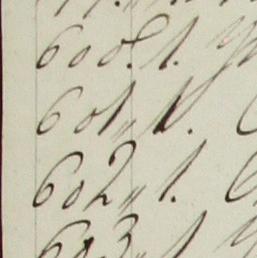 600. 1.
601 „ 1.
602 „ 1.
603 „ 1